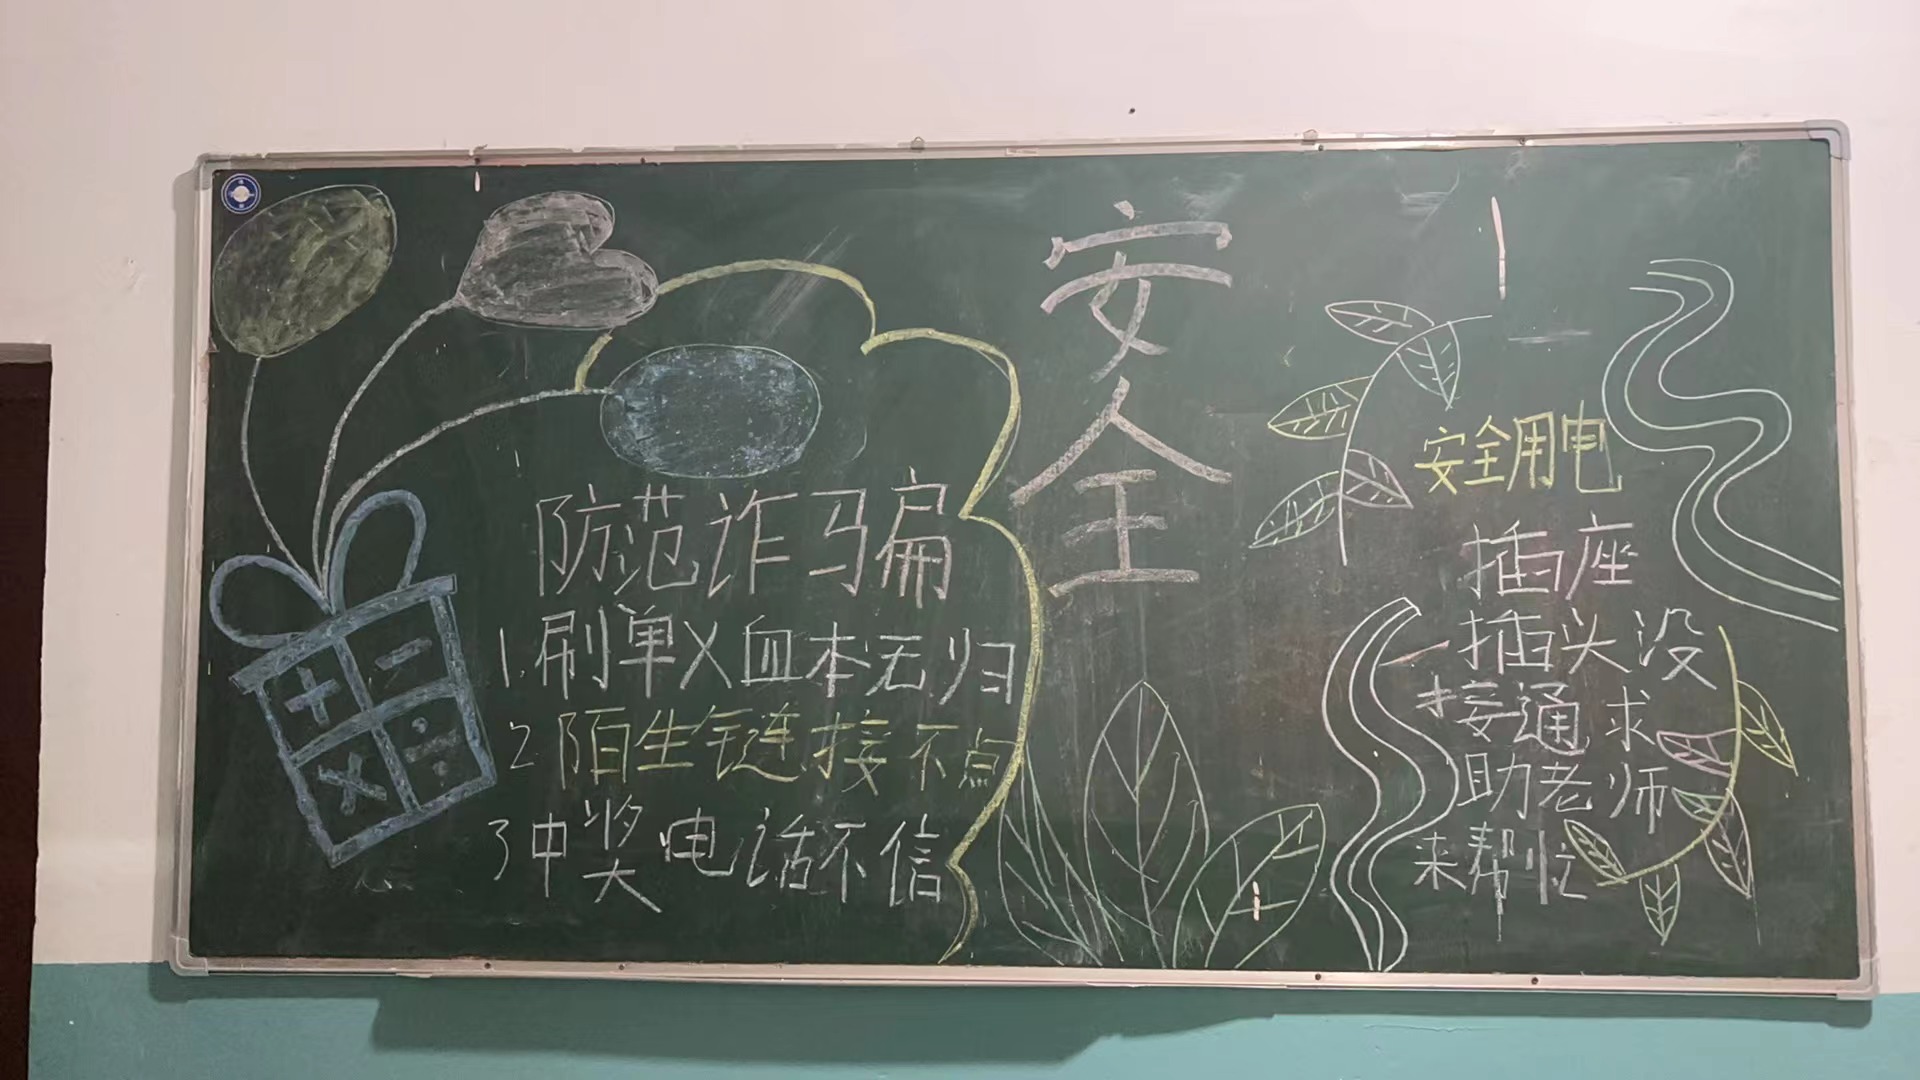 安全
防范诈骗
1.刷单X血本无归
2陌生链接不点
3中奖电话不信
安全用电
插座
插头没
接通求
助老师
来帮忙
+ -
× ÷